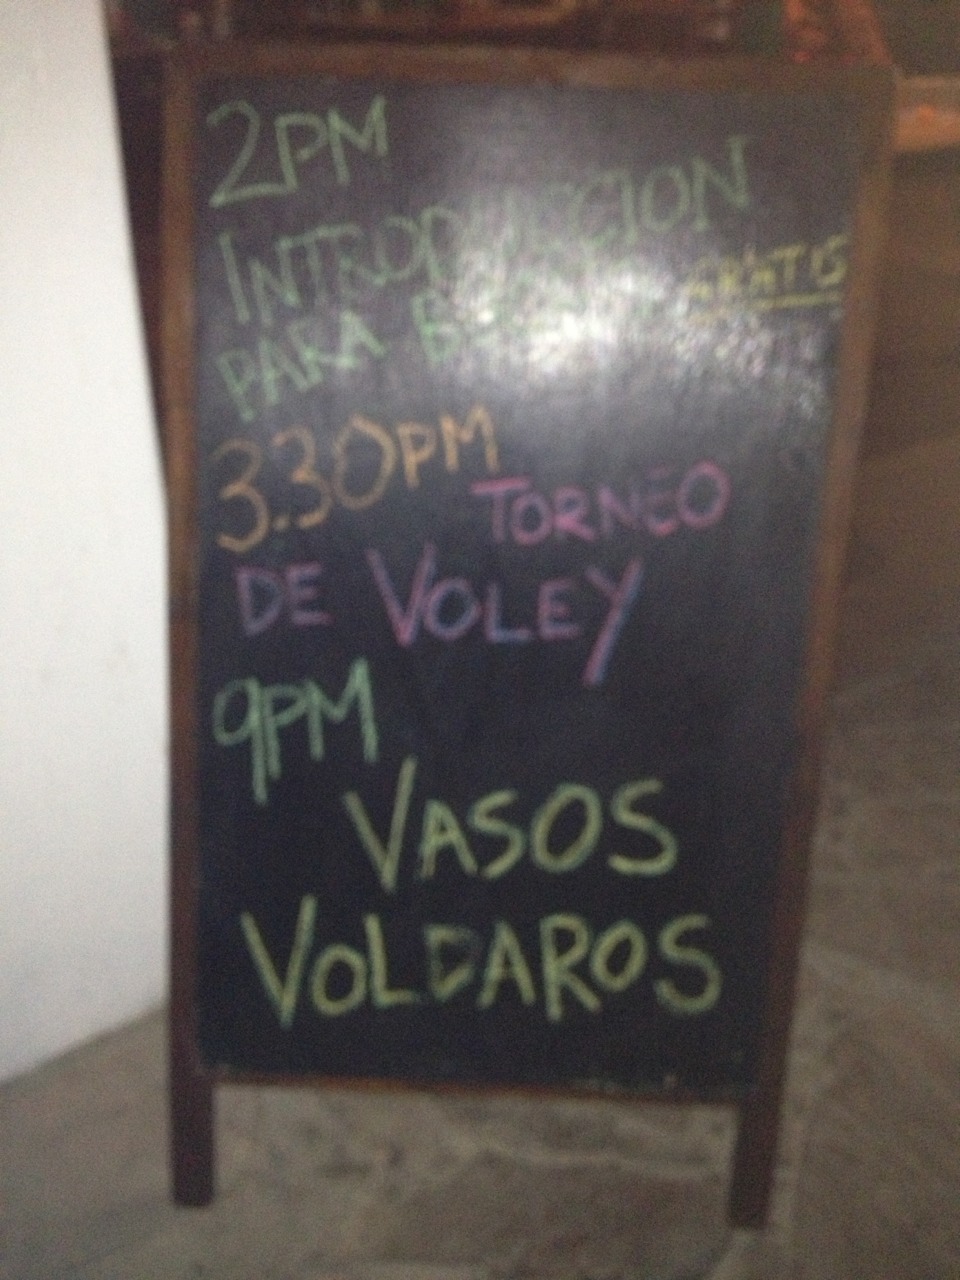 2PM
INTRODUCCION
PARA
GRATIS
3.30PM
TORNEO
DE VOLEY
9PM
VASOS
VOLDAROS